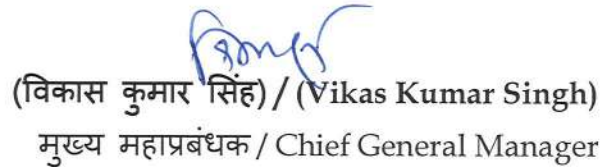 (विकास कुमार सिंह) / (Vikas Kumar Singh)
मुख्य महाप्रबंधक / Chief General Manager